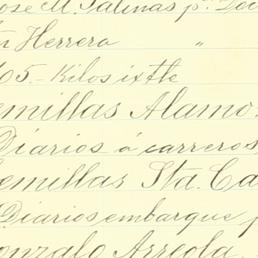 José M. Salinas p.
Herrera "
05.- Kilos ixtle
emillas Alamo.
Diarios á carreros
emillas Sta. Ca
Diarios embarque p
onzalo Arreola.